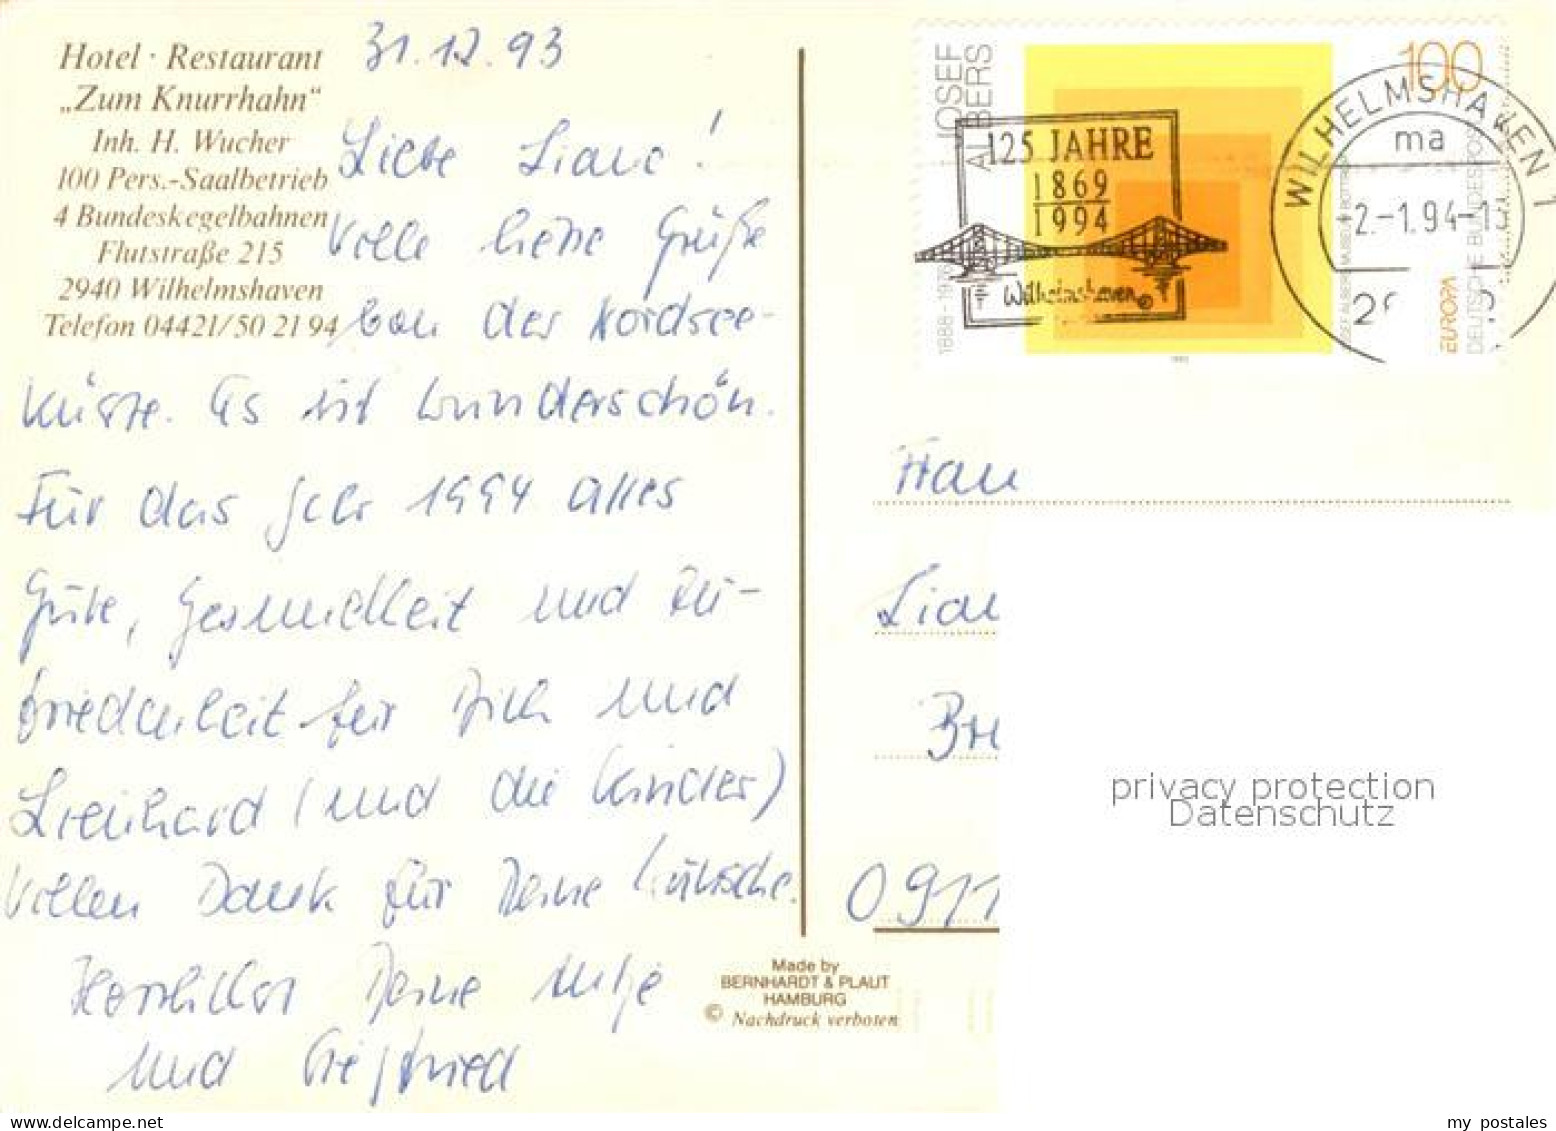 Hotel · Restaurant
„Zum Knurrhahn“
Inh. H. Wucher
100 Pers.-Saalbetrieb
4 Bundeskegelbahnen
Flutstraße 215
2940 Wilhelmshaven
Telefon 04421/50 21 94
31.12.93
Liebe Liane!
Viele liebe Grüße
von der Nordsee-
küste. Es ist wunderschön.
Für das Jahr 1994 alles
Gute, Gesundheit und Zu-
friedenheit für Dich und
Lienhard (und die Kinder)
Vielen Dank für Deine
Herzlichst Deine
und Siegfried
Made by
BERNHARDT & PLAUT
HAMBURG
© Nachdruck verboten
JOSEF
ALBERS
1888 - 1976
100
EUROPA
DEUTSCHE BUNDESPOST
1993
125 JAHRE
1869
1994
Wilhelmshaven
WILHELMSHAVEN 1
ma
2.-1.94-1
26
Frau
Lian
Bre
0911
privacy protection
Datenschutz
my postales